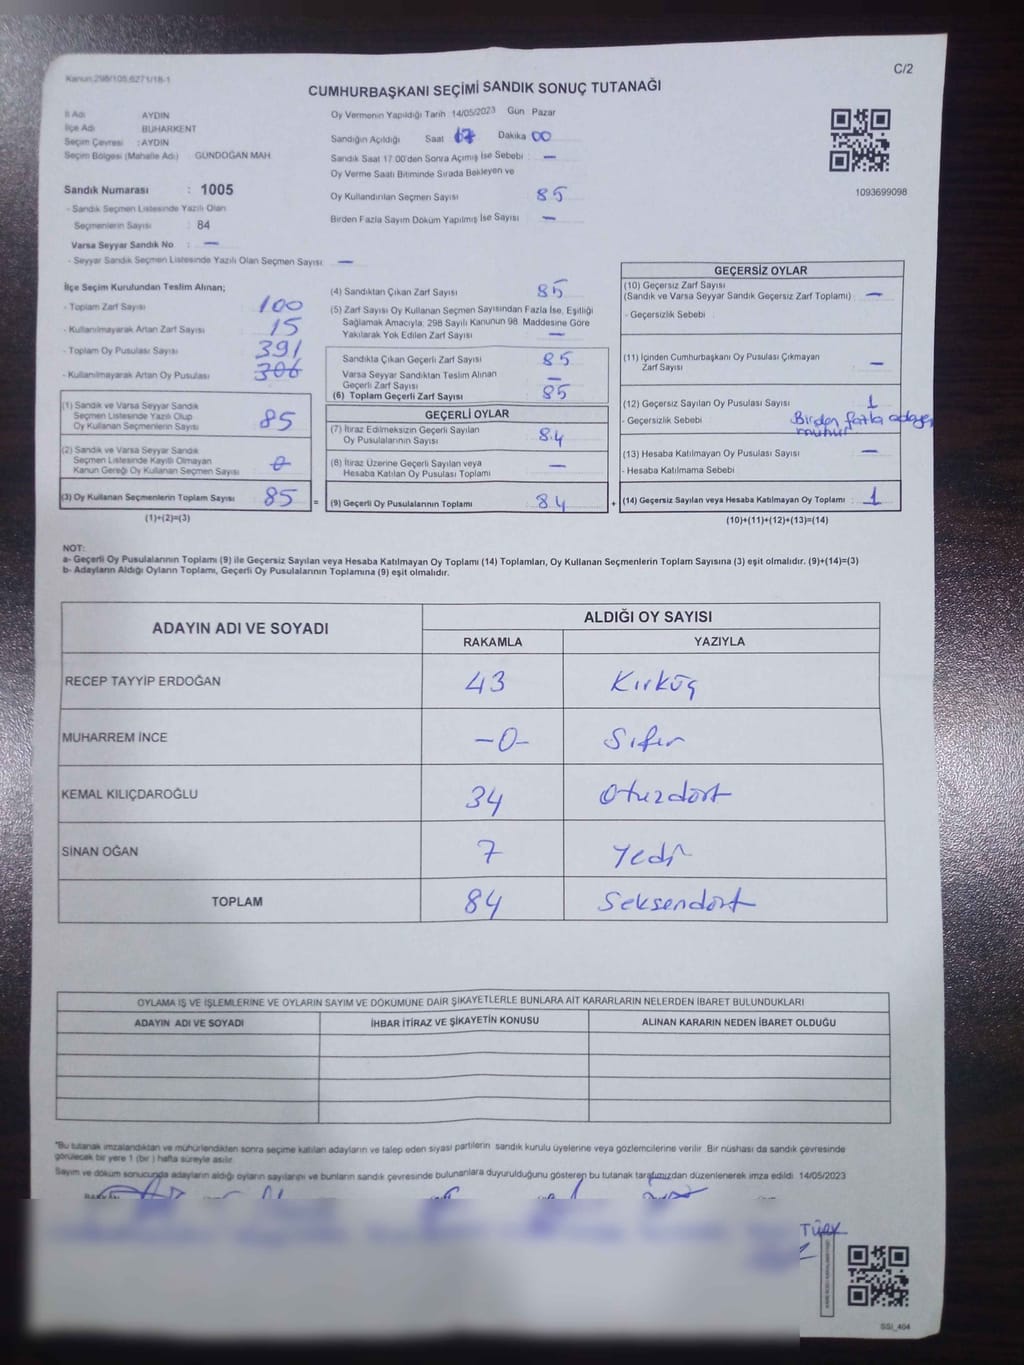 Kanun:298/105,6271/18-1
C/2
CUMHURBAŞKANI SEÇİMİ SANDIK SONUÇ TUTANAĞI
İl Adı AYDIN
İlçe Adı BUHARKENT
Seçim Çevresi : AYDIN
Seçim Bölgesi (Mahalle Adı) GÜNDOĞAN MAH
Sandık Numarası : 1005
- Sandık Seçmen Listesinde Yazılı Olan
Seçmenlerin Sayısı : 84
Varsa Seyyar Sandık No : —
- Seyyar Sandık Seçmen Listesinde Yazılı Olan Seçmen Sayısı: —
Oy Vermenin Yapıldığı Tarih 14/05/2023 Gün Pazar
Sandığın Açıldığı Saat 17 Dakika 00
Sandık Saat 17.00'den Sonra Açımış İse Sebebi : —
Oy Verme Saati Bitiminde Sırada Bekleyen ve
Oy Kullandırılan Seçmen Sayısı 85
Birden Fazla Sayım Döküm Yapılmış İse Sayısı —
1093699098
İlçe Seçim Kurulundan Teslim Alınan;
- Toplam Zarf Sayısı 100
- Kullanılmayarak Artan Zarf Sayısı 15
- Toplam Oy Pusulası Sayısı 391
- Kullanılmayarak Artan Oy Pusulası 306
(1) Sandık ve Varsa Seyyar Sandık
Seçmen Listesinde Yazılı Olup
Oy Kullanan Seçmenlerin Sayısı 85
(2) Sandık ve Varsa Seyyar Sandık
Seçmen Listesinde Kayıtlı Olmayan
Kanun Gereği Oy Kullanan Seçmen Sayısı 0
(3) Oy Kullanan Seçmenlerin Toplam Sayısı 85 =
(1)+(2)=(3)
(4) Sandıktan Çıkan Zarf Sayısı 85
(5) Zarf Sayısı Oy Kullanan Seçmen Sayısından Fazla İse, Eşitliği
Sağlamak Amacıyla, 298 Sayılı Kanunun 98. Maddesine Göre
Yakılarak Yok Edilen Zarf Sayısı —
Sandıkta Çıkan Geçerli Zarf Sayısı 85
Varsa Seyyar Sandıktan Teslim Alınan
Geçerli Zarf Sayısı —
(6) Toplam Geçerli Zarf Sayısı 85
GEÇERLİ OYLAR
(7) İtiraz Edilmeksizin Geçerli Sayılan
Oy Pusulalarının Sayısı 84
(8) İtiraz Üzerine Geçerli Sayılan veya
Hesaba Katılan Oy Pusulası Toplamı —
(9) Geçerli Oy Pusulalarının Toplamı 84 +
GEÇERSİZ OYLAR
(10) Geçersiz Zarf Sayısı
(Sandık ve Varsa Seyyar Sandık Geçersiz Zarf Toplamı) —
- Geçersizlik Sebebi :
(11) İçinden Cumhurbaşkanı Oy Pusulası Çıkmayan
Zarf Sayısı —
(12) Geçersiz Sayılan Oy Pusulası Sayısı 1
- Geçersizlik Sebebi : Birden fazla adaya
mühür
(13) Hesaba Katılmayan Oy Pusulası Sayısı —
- Hesaba Katılmama Sebebi
(14) Geçersiz Sayılan veya Hesaba Katılmayan Oy Toplamı : 1
(10)+(11)+(12)+(13)=(14)
NOT:
a- Geçerli Oy Pusulalarının Toplamı (9) ile Geçersiz Sayılan veya Hesaba Katılmayan Oy Toplamı (14) Toplamları, Oy Kullanan Seçmenlerin Toplam Sayısına (3) eşit olmalıdır. (9)+(14)=(3)
b- Adayların Aldığı Oyların Toplamı, Geçerli Oy Pusulalarının Toplamına (9) eşit olmalıdır.
ADAYIN ADI VE SOYADI ALDIĞI OY SAYISI
RAKAMLA YAZIYLA
RECEP TAYYİP ERDOĞAN 43 Kırküç
MUHARREM İNCE -0- Sıfır
KEMAL KILIÇDAROĞLU 34 Otuzdört
SİNAN OĞAN 7 Yedi
TOPLAM 84 Seksendört
OYLAMA İŞ VE İŞLEMLERİNE VE OYLARIN SAYIM VE DÖKÜMÜNE DAİR ŞİKAYETLERLE BUNLARA AİT KARARLARIN NELERDEN İBARET BULUNDUKLARI
ADAYIN ADI VE SOYADI İHBAR İTİRAZ VE ŞİKAYETİN KONUSU ALINAN KARARIN NEDEN İBARET OLDUĞU
*Bu tutanak imzalandıktan ve mühürlendikten sonra seçime katılan adayların ve talep eden siyasi partilerin sandık kurulu üyelerine veya gözlemcilerine verilir. Bir nüshası da sandık çevresinde
görülecek bir yere 1 (bir) hafta süreyle asılır.
Sayım ve döküm sonucunda adayların aldığı oyların sayılarını ve bunların sandık çevresinde bulunanlara duyurulduğunu gösteren bu tutanak tarafımızdan düzenlenerek imza edildi. 14/05/2023
TÜRK
SSİ_404